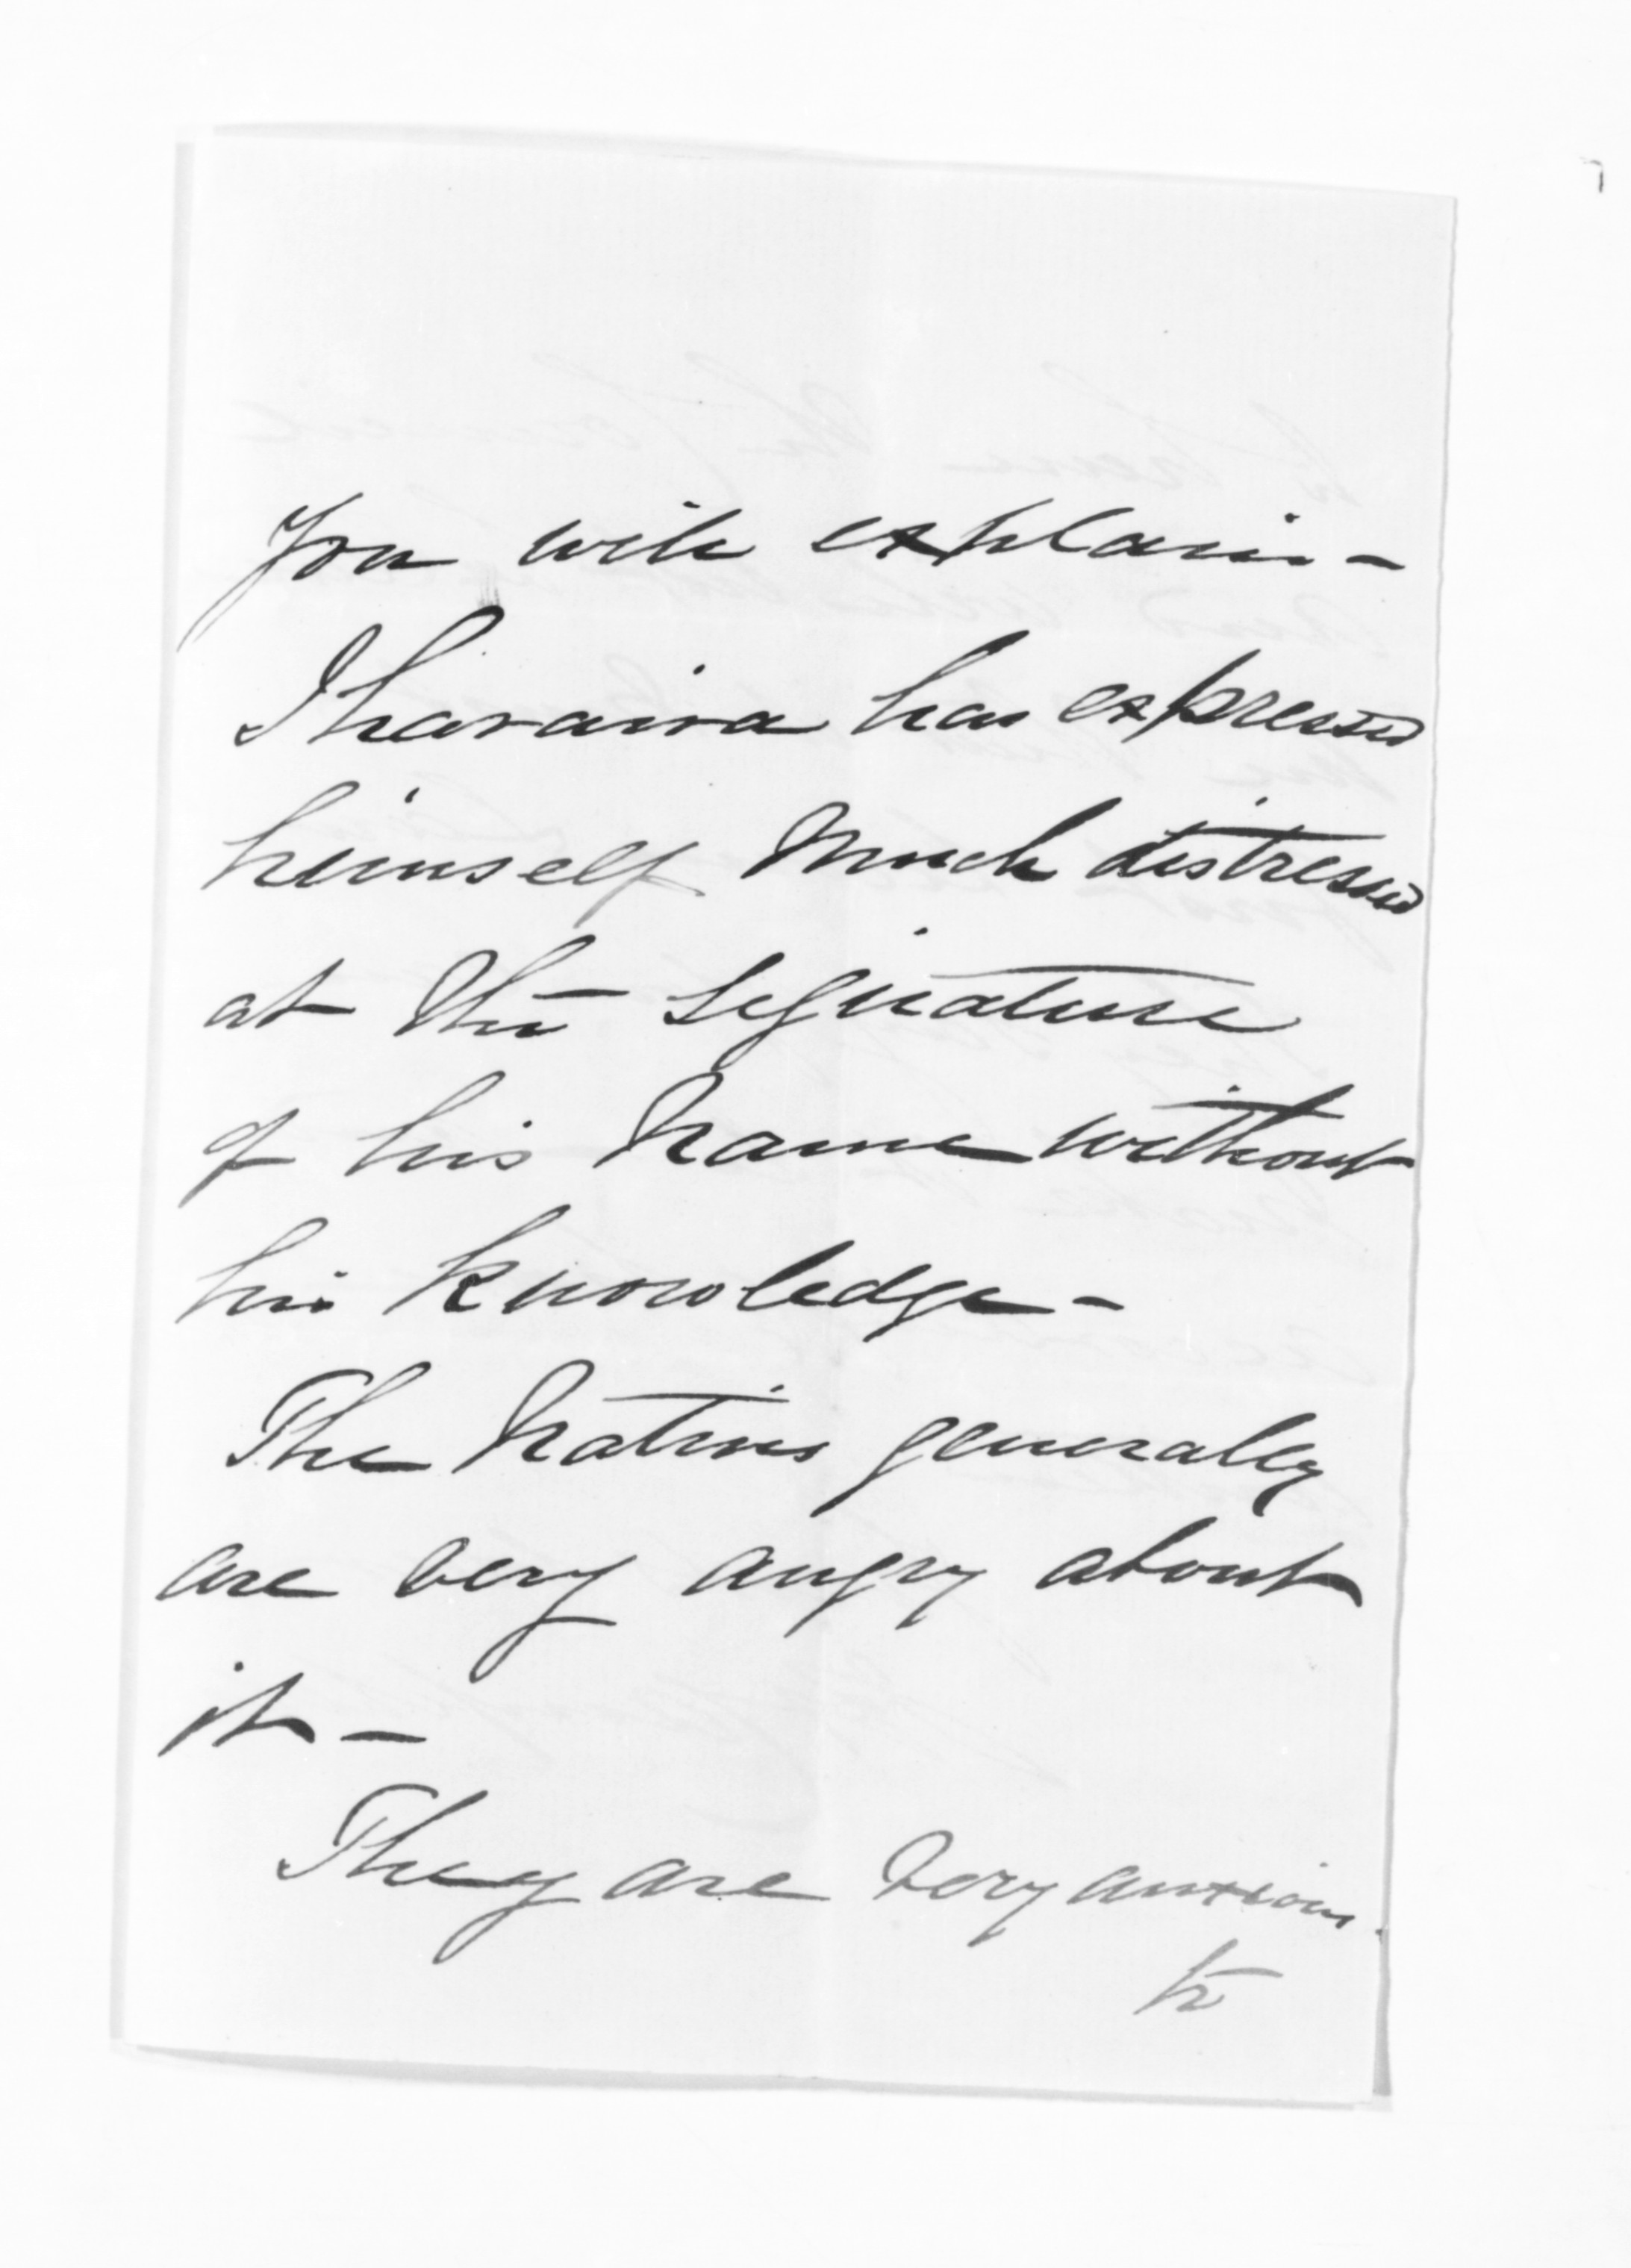 You will explain -
Iharaira has expressed
himself much distressed
at the signature
of his name without
his knowledge -
The Natives generally
are very angry about
it -
They are very anxious
to